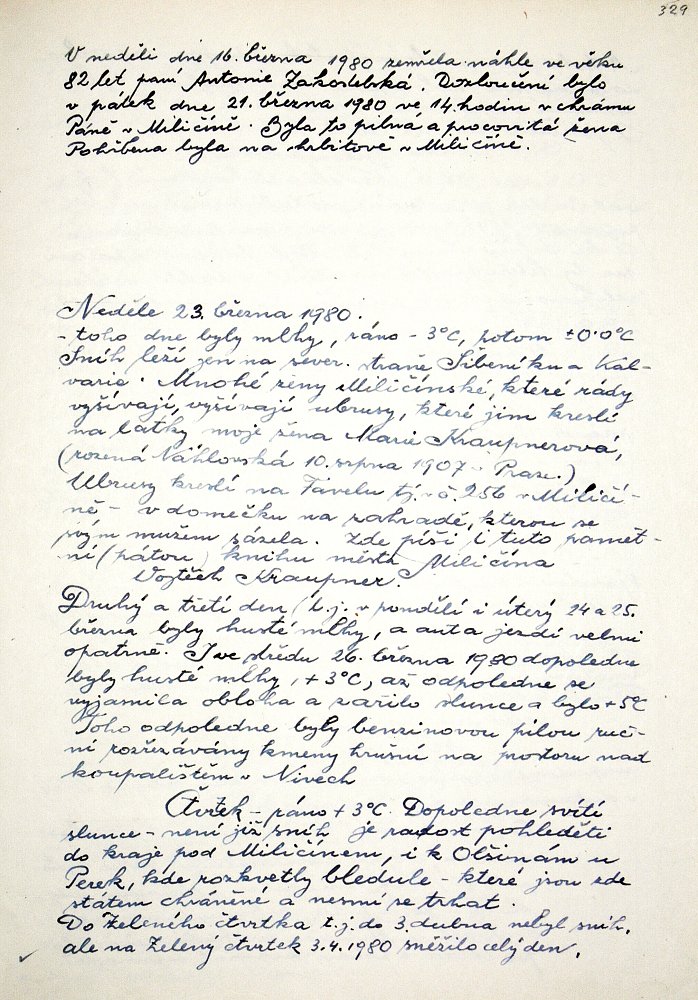 329
V neděli dne 16. března 1980 zemřela náhle ve věku
82 let paní Antonie Zakostelská. Rozloučení bylo
v pátek dne 21. března 1980 ve 14. hodin v chrámu
Páně v Miličíně. Byla to pilná a pracovitá žena
Pohřbena byla na hřbitově v Miličíně.
Neděle 23. března 1980.
- toho dne byly mlhy, ráno - 3°C, potom ±0·0°C
Sníh leží jen na sever. straně Šibeníku a Kal-
varie. Mnohé ženy Miličínské, které rády
vyšívají, vyšívají ubrusy, které jim kreslí
na látky moje žena Marie Kraupnerová,
(rozená Náhlovská 10. srpna 1907 v Praze.)
Ubrusy kreslí na Favelu tj. v č. 256 v Miličí-
ně - v domečku na zahradě, kterou se
svým mužem sázela. Zde píši i tuto pamět-
ní (pátou) knihu města Miličína
Vojtěch Kraupner.
Druhý a třetí den (t.j. v pondělí i úterý 24 a 25.
března byly husté mlhy, a auta jezdí velmi
opatrně. I ve středu 26. března 1980 dopoledne
byly husté mlhy, +3°C, až odpoledne se
vyjasnila obloha a zářilo slunce a bylo +5°C
Toho odpoledne byly benzinovou pilou ruč-
ní rozřezávány kmeny hrušní na prostoru nad
koupalištěm v Nivech
Čtvrtek - ráno + 3°C. Dopoledne svítí
slunce - není již sníh je radost pohleděti
do kraje pod Miličínem, i k Olšinám u
Perek, kde rozkvetly bledule - které jsou zde
státem chráněné a nesmí se trhat.
Do Zeleného čtvrtka t.j. do 3. dubna nebyl sníh,
ale na Zelený čtvrtek 3.4.1980 sněžilo celý den.